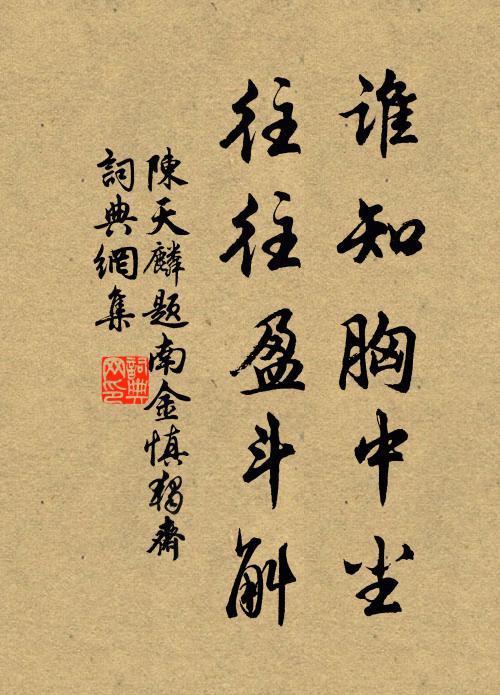 谁知胸中尘
往往盈斗斛
陳天麟题南金慎独齋
詞典網集
詞典网印